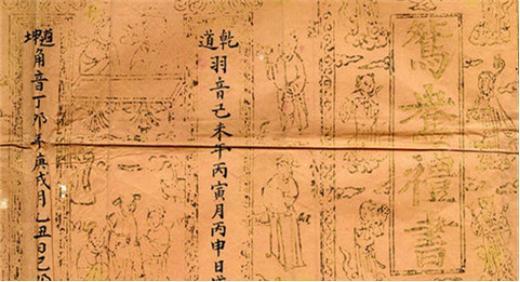 鴛鴦禮書
乾道
羽音己未年丙寅月丙申日
坤道
角音丁卯年庚戌月乙丑日己